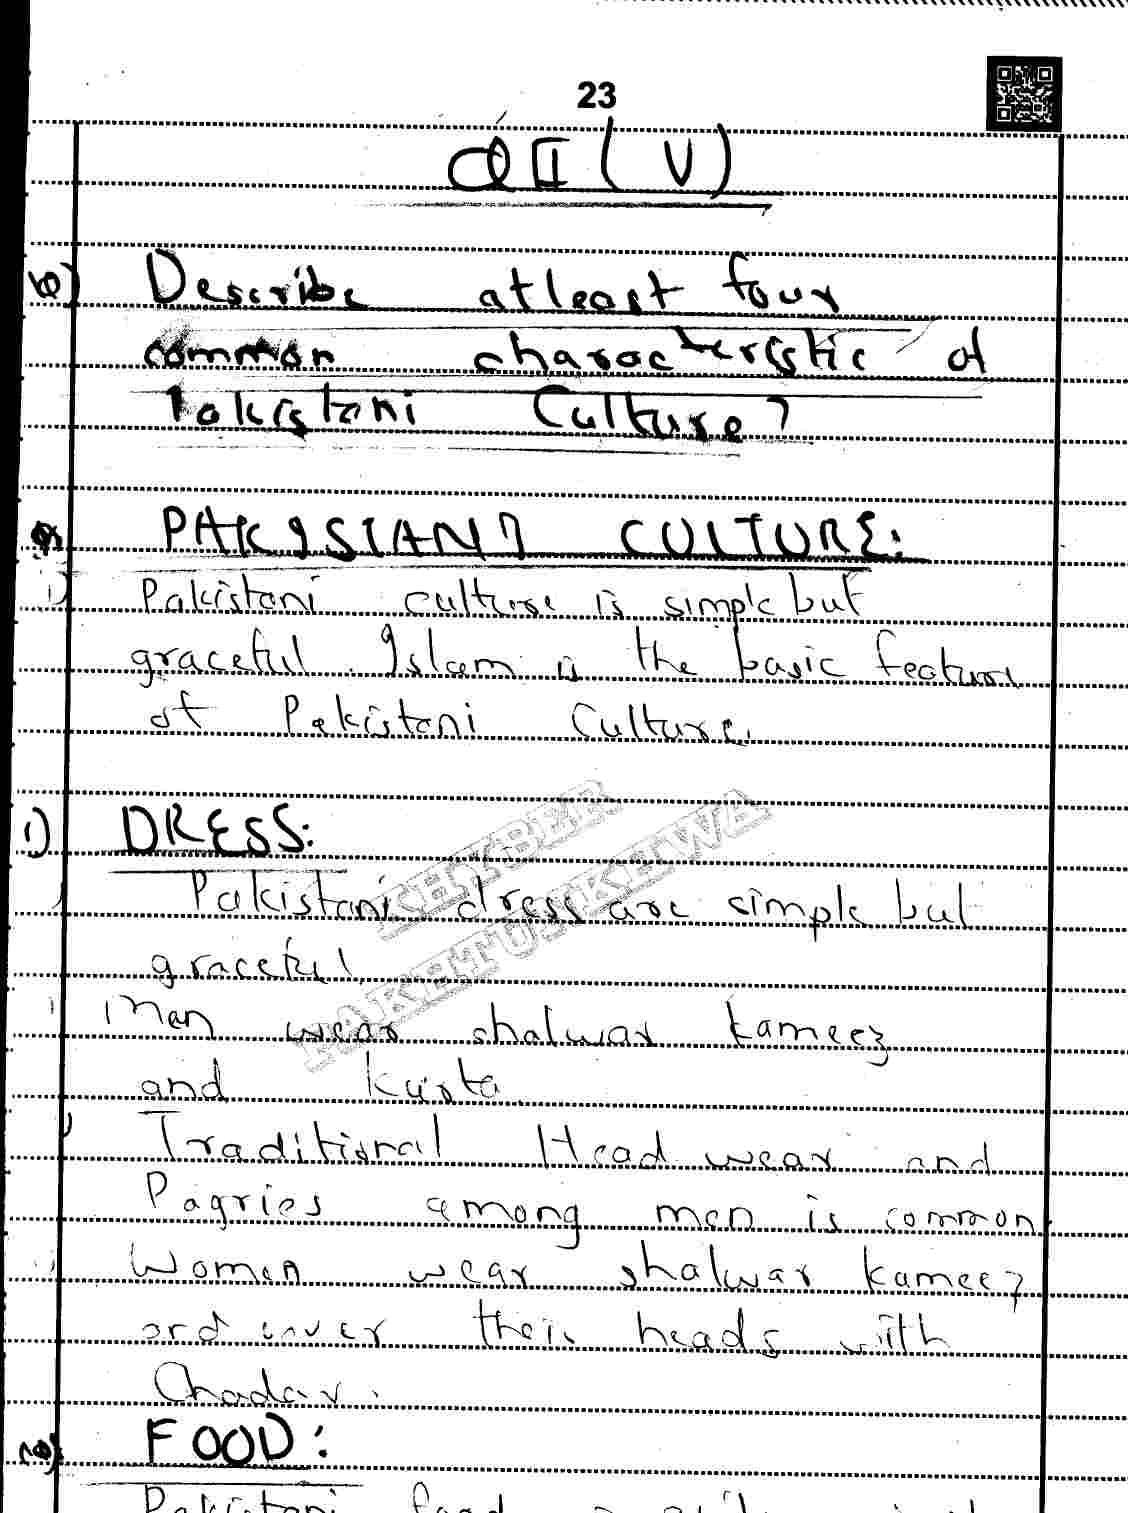 23
QII(V)
Describe atleast four
common characteristic of
Pakistani Culture?
PAKISTANI CULTURE:
i) Pakistani culture is simple but
graceful. Islam is the basic feature
of Pakistani Culture.
1) DRESS:
Pakistani dress are simple but
graceful
Men wear shalwar kameez
and Kurta
Traditional Head wear and
Pagries among men is common.
Women wear shalwar kameez
and cover their heads with
Chadar.
FOOD:
Pakistani food
KHYBER
PAKHTUNKHWA